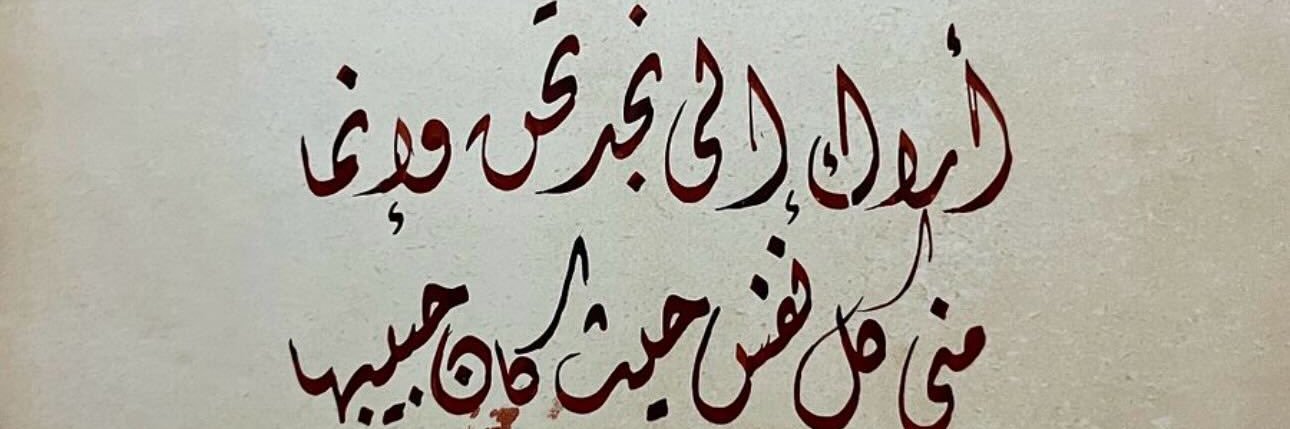 أراك إلى نجد تحن وإنما
منى كل نفس حيث كان حبيبها